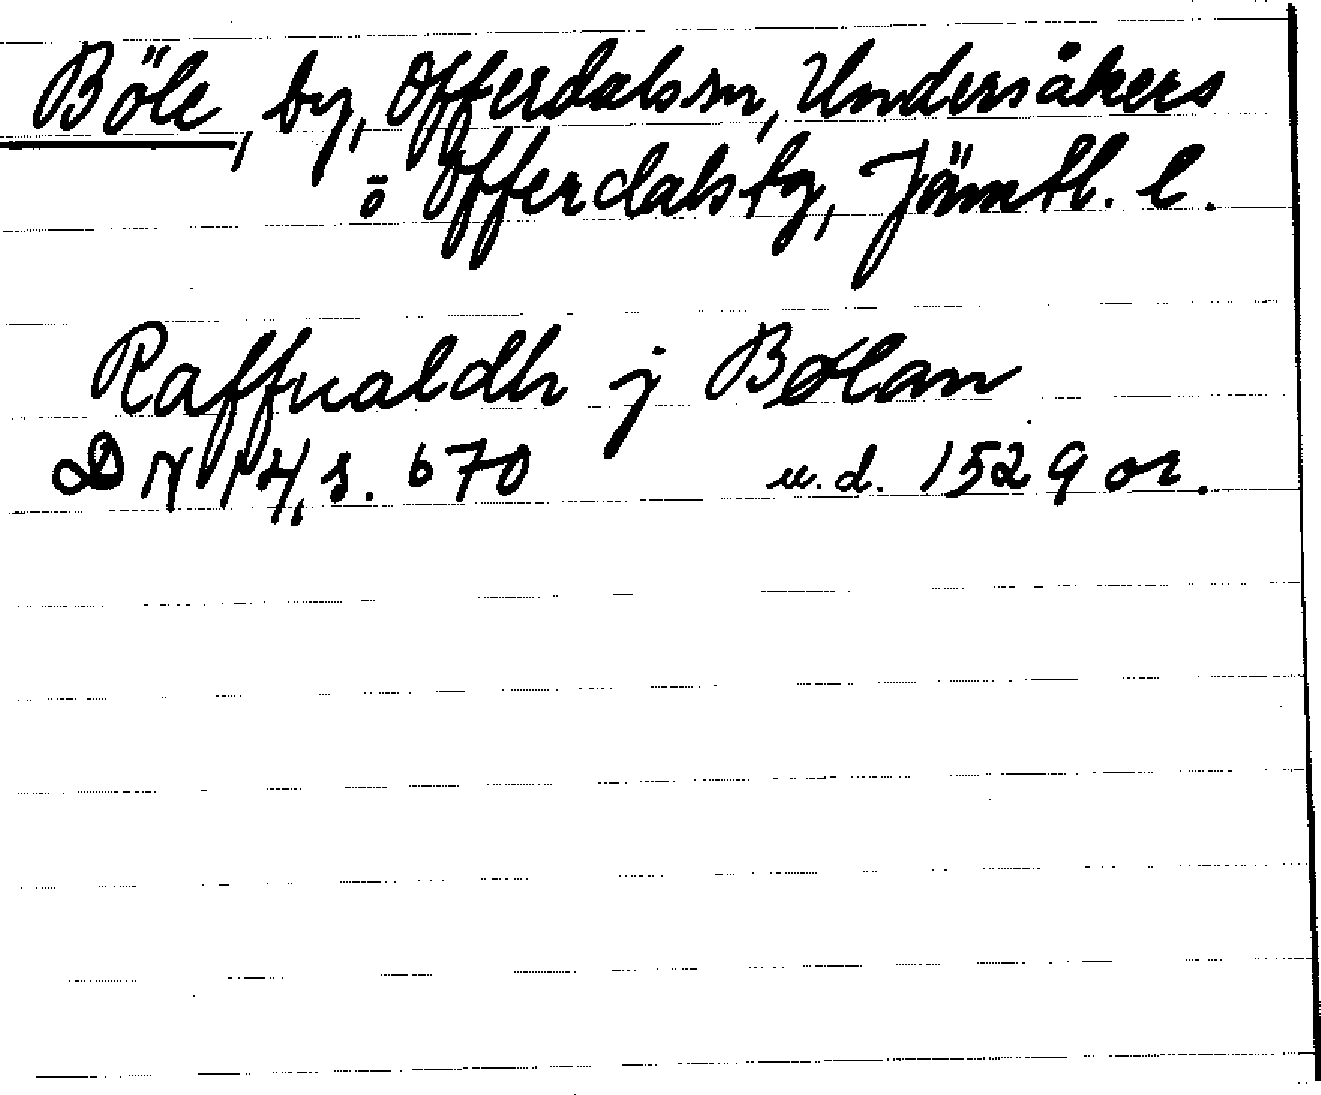 Böle, by, Offerdals sn, Undersåkers
o Offerdals tg, Jämtl. l.
Raffualdh j Bølan
DN 14, s. 670 u.d. 1529 or.